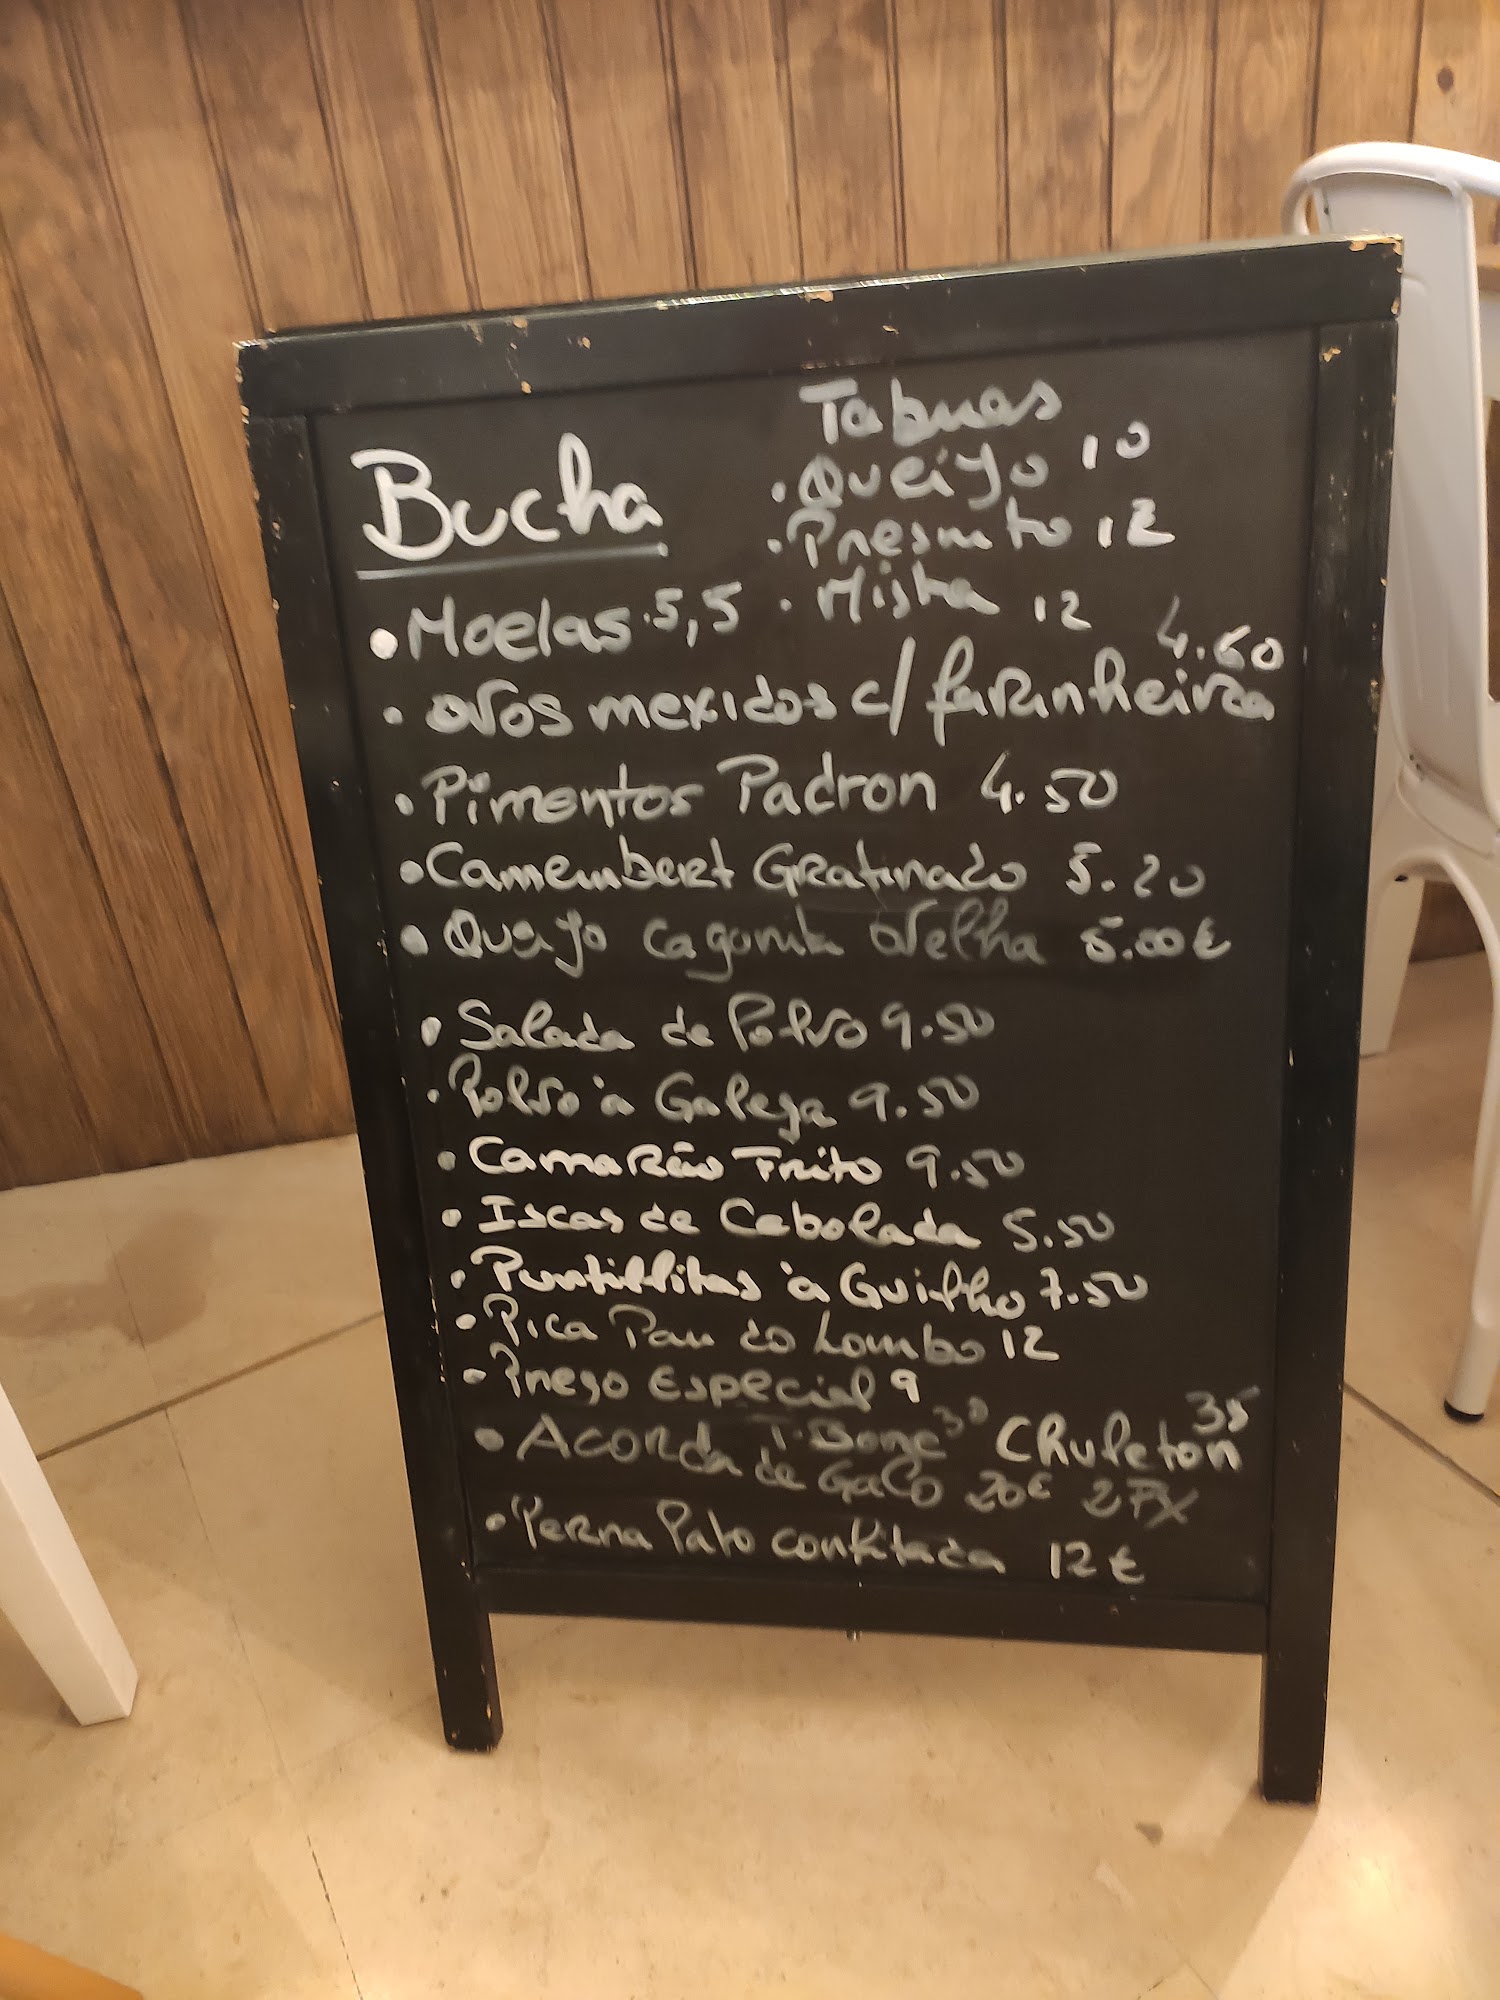 Bucha
Tabuas
• Queijo 10
• Presunto 12
• Mista 12
• Moelas 5,5
4.60
• ovos mexidos c/ farinheira
• Pimentos Padron 4.50
• Camembert Gratinado 5.20
• Queijo ovelha 5.00€
• Salada de Polvo 9.50
• Polvo à Galega 9.50
• Camarão Frito 9.50
• Iscas de Cebolada 5.50
• Puntillitas à Guilho 7.50
• Pica Pau do Lombo 12
• Prego Especial 9
T. Bone 30 Chuleton 35
• Acorda de Gaco 20€ 2PX
• Perna Pato confitada 12€